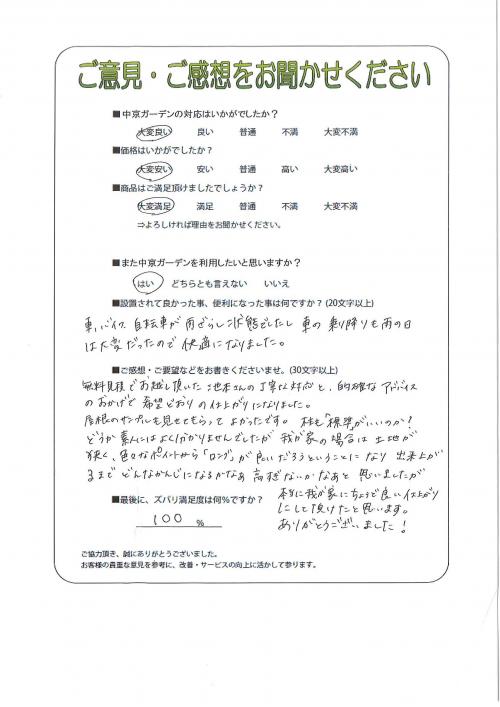 ご意見・ご感想をお聞かせください
■中京ガーデンの対応はいかがでしたか？
大変良い 良い 普通 不満 大変不満
■価格はいかがでしたか？
大変安い 安い 普通 高い 大変高い
■商品はご満足頂けましたでしょうか？
大変満足 満足 普通 不満 大変不満
⇒よろしければ理由をお聞かせください。
■また中京ガーデンを利用したいと思いますか？
はい どちらとも言えない いいえ
■設置されて良かった事、便利になった事は何ですか？(20文字以上)
車、バイク、自転車が雨ざらし状態でしたし 車の乗り降りも雨の日
は大変だったので快適になりました。
■ご感想・ご要望などをお書きくださいませ。(30文字以上)
無料見積でお越し頂いた池本さんの丁寧な対応と、的確なアドバイス
のおかげで希望どおりの仕上がりになりました。
屋根のサンプルも見せてもらってよかったです。柱も「標準」がいいのか？
どうか素人にはよく分かりませんでしたが 我が家の場合は土地が
狭く、色々なポイントから「ロング」が良いだろうということになり 出来上が
るまで どんなかんじになるかなあ 高すぎないかなあと思いましたが
本当に我が家にちょうど良い仕上がり
にして頂けたと思います。
ありがとうございました！
■最後に、ズバリ満足度は何％ですか？
100 %
ご協力頂き、誠にありがとうございました。
お客様の貴重な意見を参考に、改善・サービスの向上に活かして参ります。